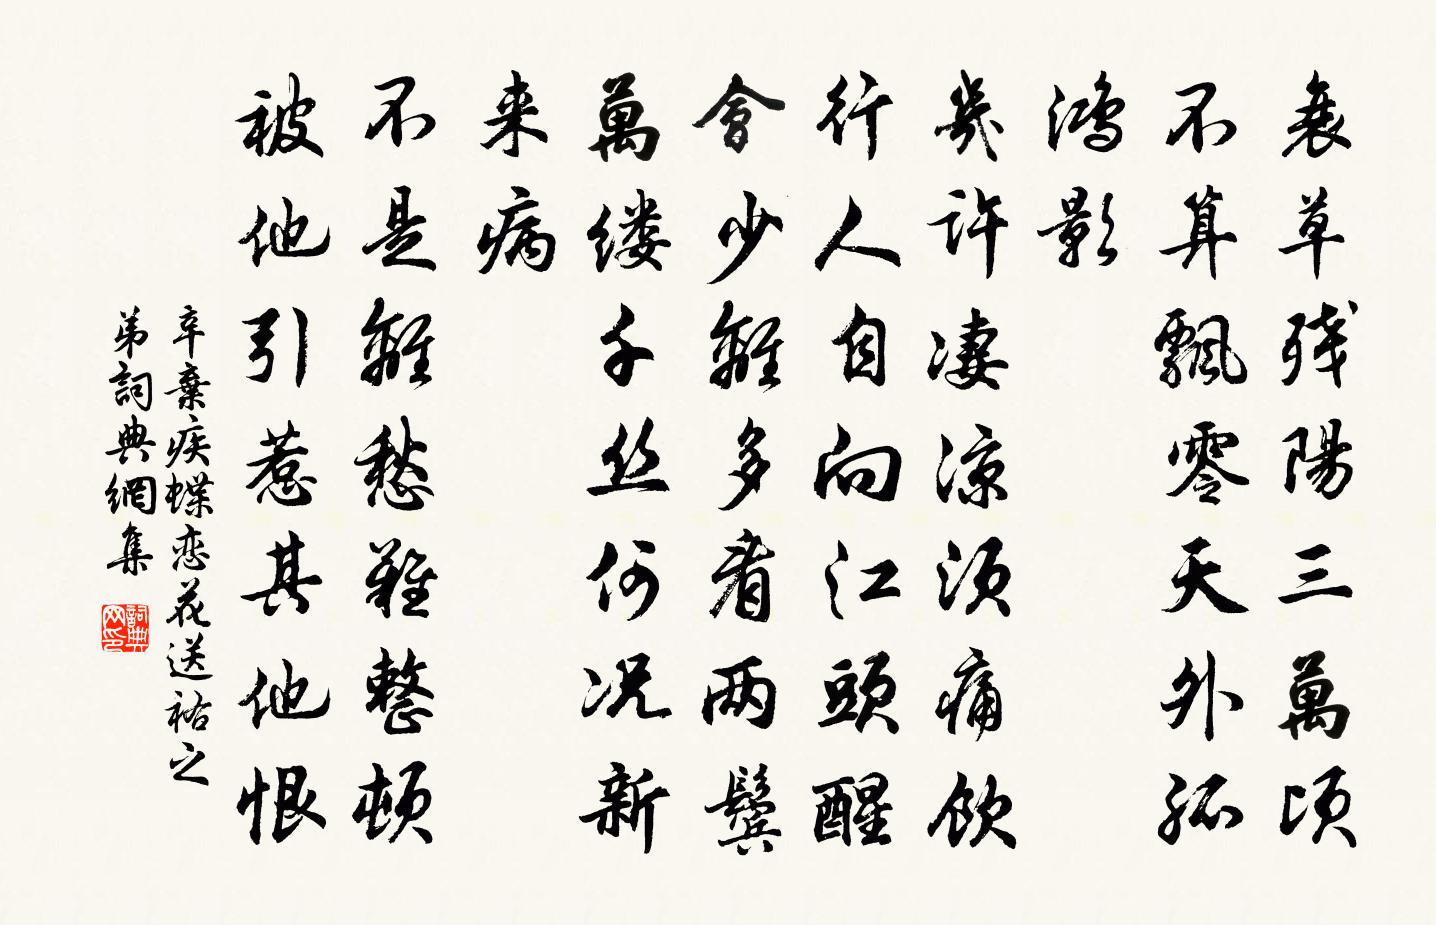 衰草残陽三萬頃
不算飄零天外孤
鴻影
幾許凄涼須痛飲
行人自向江頭醒
會少離多看两鬓
萬缕千丝何况新
来病
不是離愁難整頓
被他引惹其他恨
辛棄疾蝶恋花送祐之
弟詞典網集
詞典网印